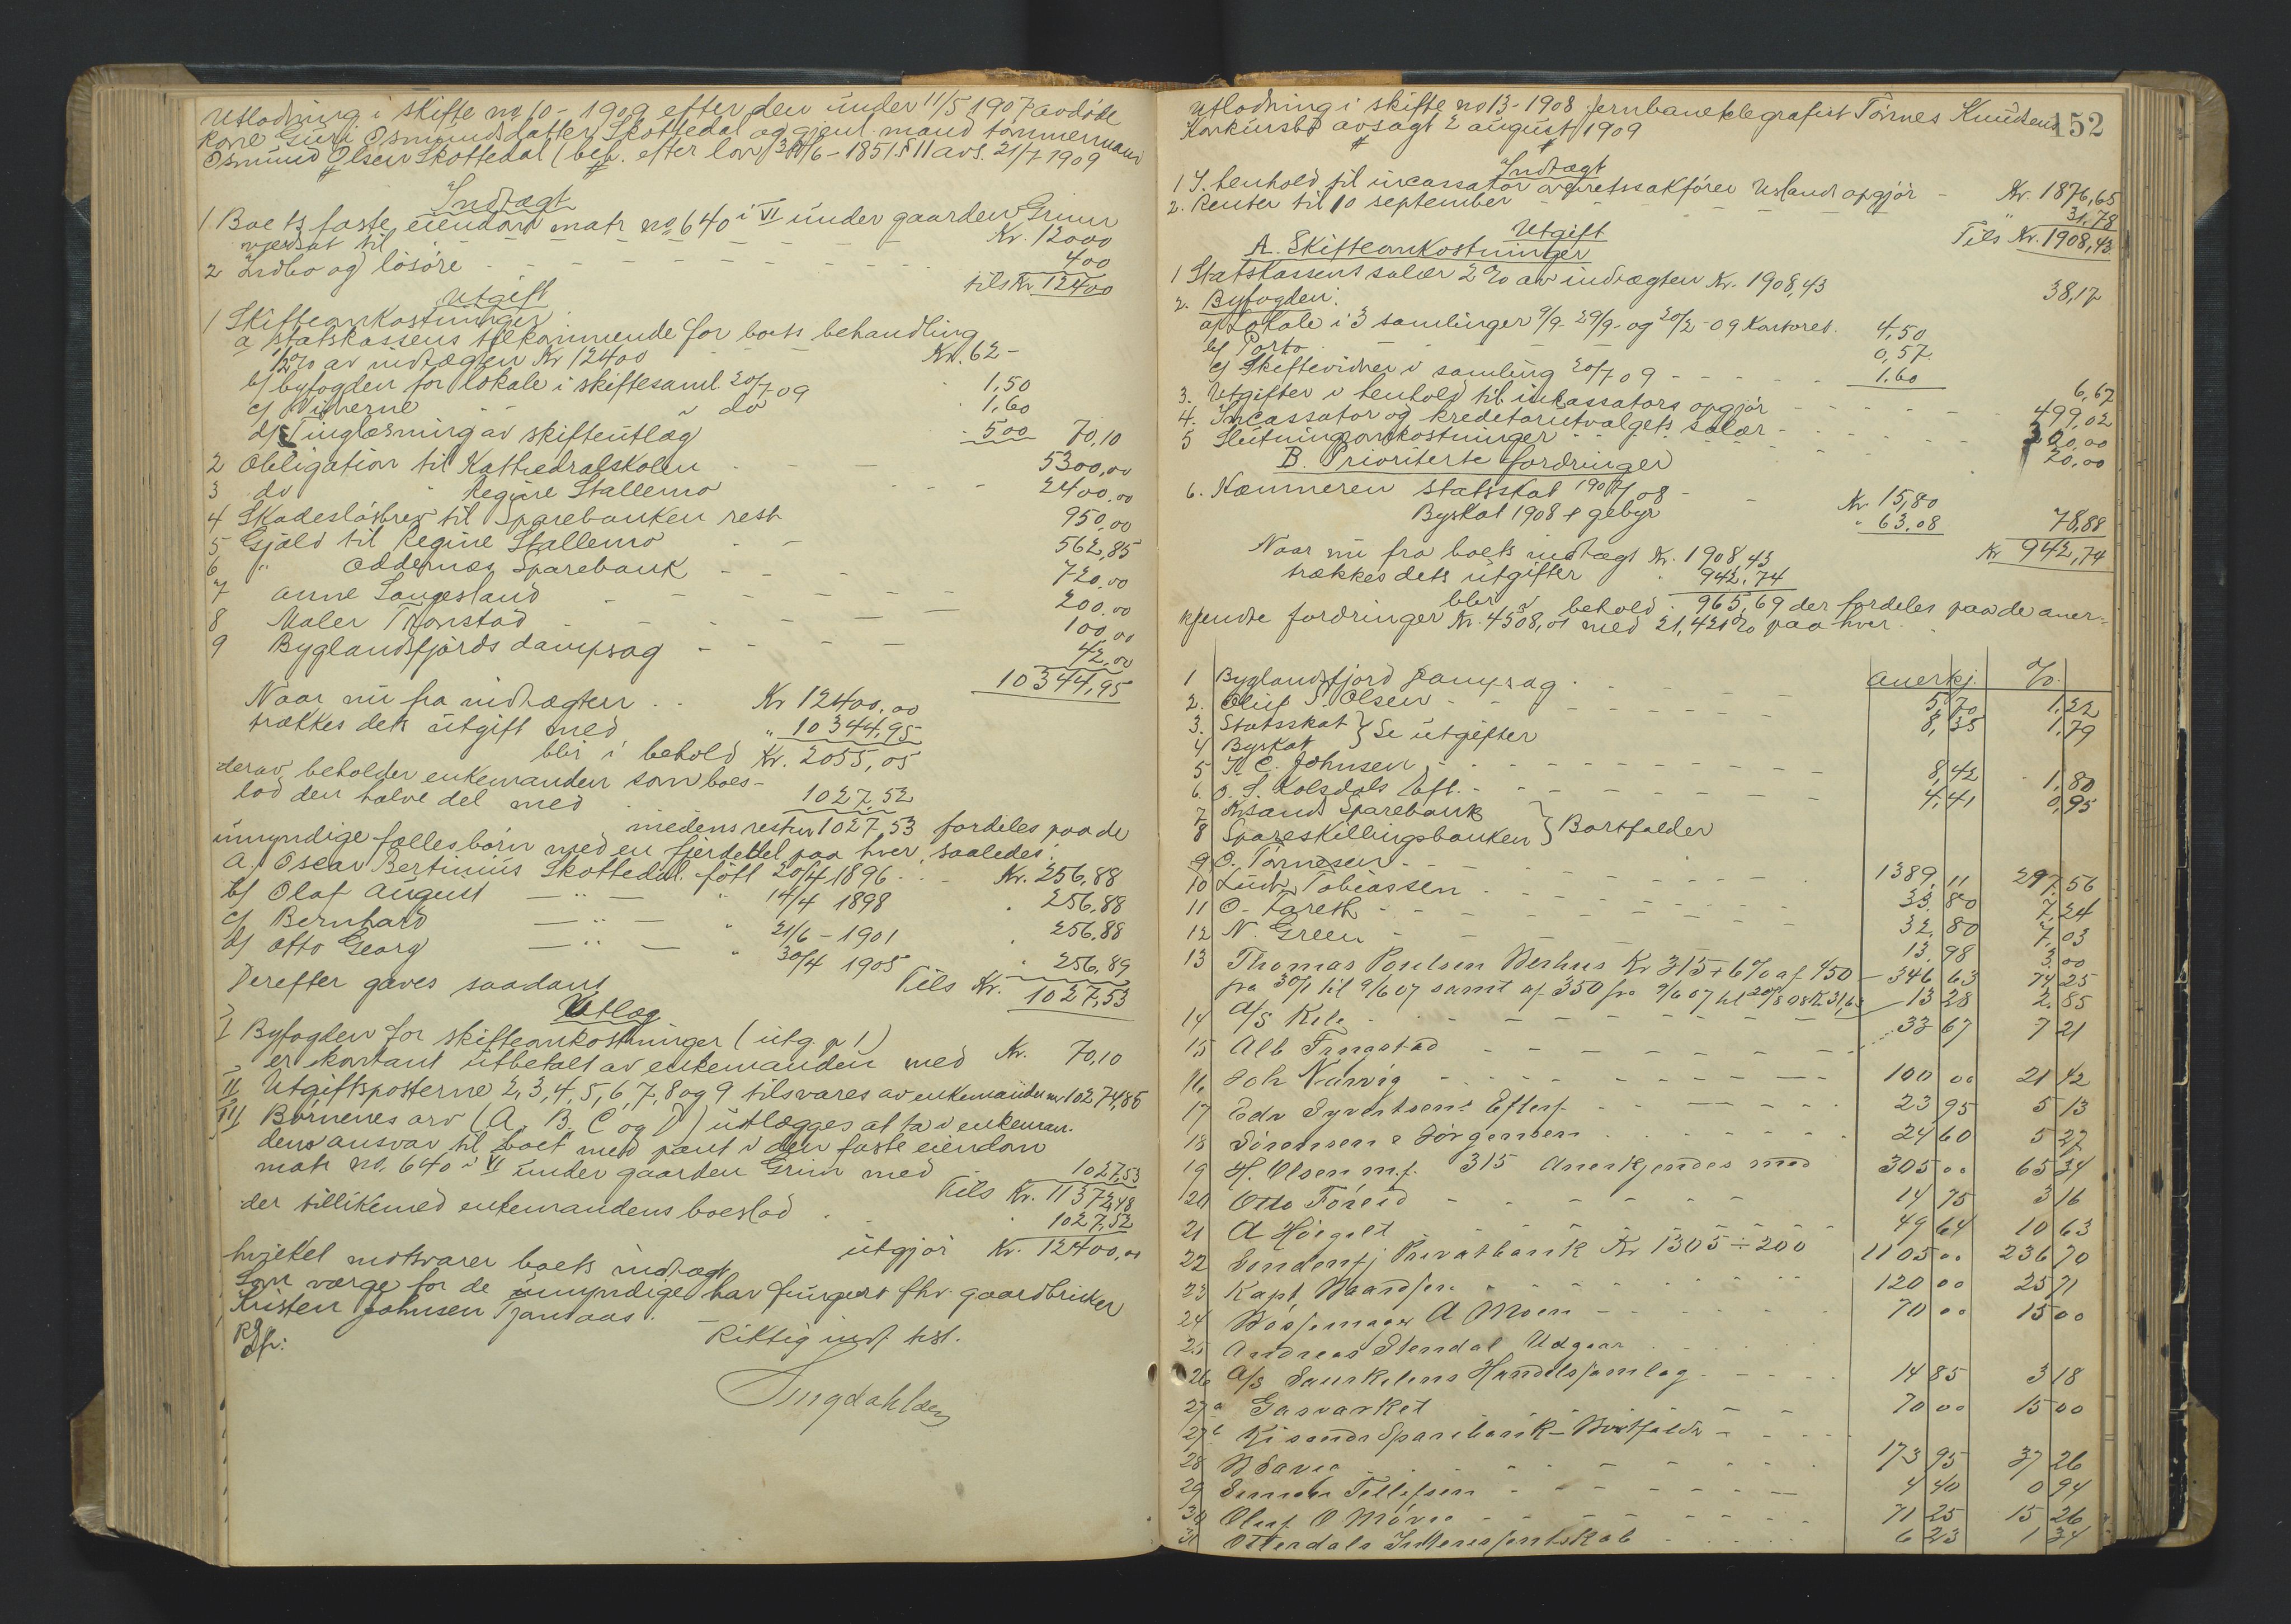 Utlodning i skifte no 10-1909 efter den under 11/5 1907 avdöde
kone Guri Osmundsdatter Skottedal og gjenl. mand tømmermand
Osmund Olsen Skottedal (beh. efter lov 30/6-1851 § 11 avs. 21/7 1909
Indtægt
1 Boets faste eiendom matr no 640 i VI under gaarden Grim
værdsat til - - - - - Kr. 12000
2 Indbo og løsöre - - - - - 400
tils Kr 12400
Utgift
1 Skifteomkostninger:
a Statskassens tilkommende for boets behandling
1/2 % av indtægten Kr 12400 Kr. 62-
b/ byfogden for lokale i skiftesaml. 20/7 09 1,50
c/ Vidnerne " do 1,60
d/ Tinglæsning av skifteutlæg 500 70,10
2 Obligation til Kathedralskolen 5300,00
3 do " Regine Stallemo 2400,00
4 Skadeslösbrev til Sparebanken rest 950,00
5 Gjæld til Regine Stallemo 562,85
6 " Oddernes Sparebank 720,00
7 Anne Langesland 200,00
8 Maler Thonstad 100,00
9 Byglandsfjords dampsag 42,00
10344,95
Naar nu fra indtægten . . Kr 12400,00
trækkes dets utgift med " 10344,95
blir i behold Kr. 2055,05
derav beholder enkemanden som boes-
lod den halve del med 1027,52
medens resten 1027,53 fordeles paa de
umyndige fællesbörn med en fjerdedel paa hver, saaledes:
A/ Oscar Bertinius Skottedal født 20/4 1896 Kr. 256,88
b/ Olaf August — " — " 14/4 1898 " 256,88
c/ Bernhard — " — " 21/6-1901 " 256,88
d/ Otto Georg — " — " 30/4 1905 " 256,89
Tils Kr. 1027,53
Derefter gaves saadant
Utlæg
I Byfogden for skifteomkostninger (utg. p 1)
er kontant utbetalt av enkemanden med Kr. 70,10
II Utgiftsposterne 2, 3, 4, 5, 6, 7, 8 og 9 tilsvares av enkemanden m 10274,85
III Börnenes arv (A, B, C og D) utlægges at ta i enkeman-
dens ansvar til boet med pant i den faste eiendom
matr no. 640 i VI under gaarden Grim med 1027,53
Tils Kr. 11372,48
der tillikemed enkemandens boeslod 1027,52
utgjör Kr. 12400,00
hvilket motsvarer boets indtægt
Som værge for de umyndige har fungert fhv. gaardbruker
Kristen Johnsen
Riktig indf. test.
152
Utlodning i skifte no 13-1908 jernbanetelegrafist Tönnes Knudsens
Konkursbo avsagt 2 august 1909
Indtægt
1 I henhold til incassator overretssakförer Uslands opgjör - Kr. 1876,65
2. Renter til 10 september - - - " 31,78
Tils Kr. 1908,43
Utgift
A. Skifteomkostninger
1 Statskassens salær 2 % av indtægten Kr. 1908,43 38,17
2. Byfogden:
a/ Lokale i 3 samlinger 9/9- 29/9- og 20/2-09 Kontoret. 4,50
b/ Porto 0,57
c/ Skiftevidner i samling 20/7 09 1,60 6,67
3. Utgifter i henhold til incassators opgjör 499,02
4. Incassator og kreditorutvalgets salær 300,00
5 Slutningomkostninger 20,00
B. Prioriterte fordringer
6. Kæmneren Statsskat 1907/08 Kr 15,80
Byskat 1908 + gebyr " 63,08 78,88
Kr 942,74
Naar nu fra boets indtægt Kr. 1908,43
trækkes dets utgifter " 942,74
blir i behold 965,69 der fordeles paa de aner-
kjendte fordringer Kr. 4508,01 med 21,421 % paa hver.
anerkj. %
1 Byglandsfjord Dampsag 5,70 1,22
2. Oluf S. Olsen 8,35 1,79
3. Statsskat } Se utgifter
4 Byskat
5 K. C. Johnsen 8,42 1,80
6. O. S. Kolsdals Eft. 4,41 0,95
7. Krsand Sparebank } Bortfalder
8 Spareskillingsbanken
9 O. Tönnesen 1389,11 297,56
10 Ludv. Tobiassen 33,80 7,24
11 O. Fareth 32,80 7,03
12 N. Green 13,98 3,00
13 Thomas Poulsen Berhus Kr 315 + 6% af 450 346 63 74 25
fra 30/1 til 9/6 07 samt af 350 fra 9/6 07 til 20/8 08 Kr 31,63
14 A/S Kile 13 28 2,85
15 Alb Tingstad 33 67 7 21
16, Joh Narvig 100 00 21 42
17 Edv Syvertsens Efterf. 23 95 5 13
18 Sörensen & Jörgensen 24 60 5 27
19 H. Olsen m.f. 315 Anerkjendes med 305 00 65 34
20 Otto Foreid 14 75 3 16
21 A Höigilt 49 64 10 63
22 Søndenfj Privatbank Kr 1305 ÷ 200 1105 00 236 70
23 Kapt 120 00 25 71
24 Bössemager A Moen 70 00 15 00
25 Andreas Stendal Udgaar
26 A/S Handelssamlag 14 85 3 18
27 a Gasværket 70 00 15 00
27 b Kr sands Sparebank - Bortfalder
28 173 95 37 26
29 Tellefsen 4 40 0 94
30 Oluf O 71 25 15 26
31 Otterdals Interessentskab 6 23 1 34